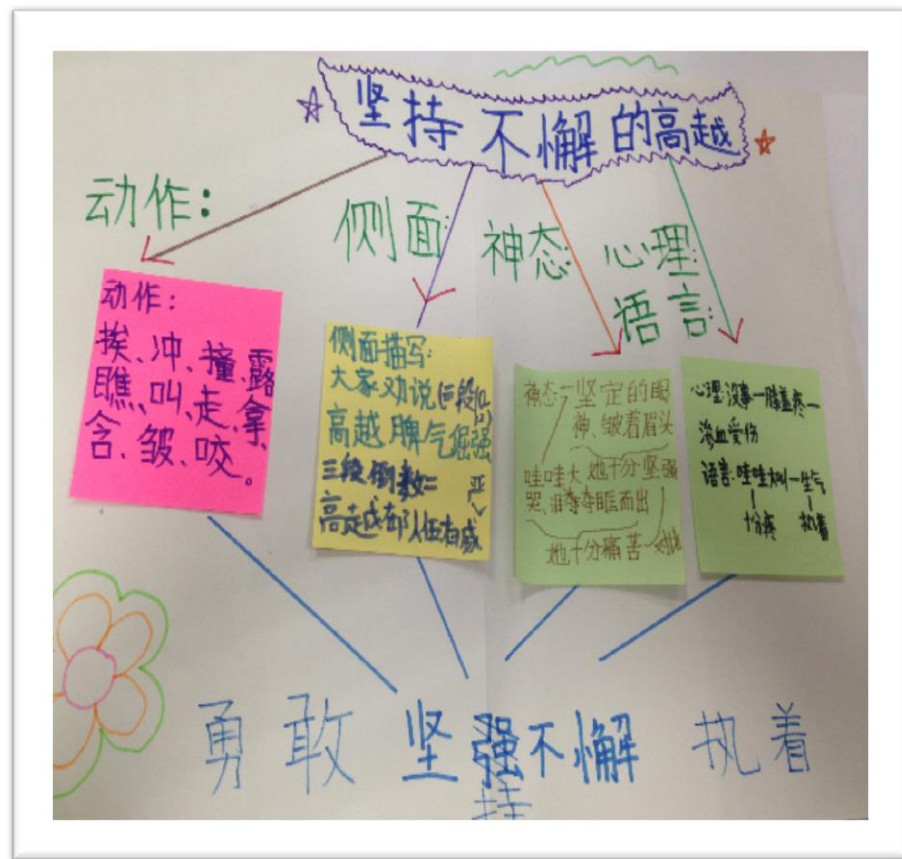 坚持不懈的高越
动作：
侧面：
神态：
心理：
语言：
动作：
挨、冲、撞、露
瞧、叫、走、拿、
含、皱、咬。
侧面描写：
大家劝说(二段
高越脾气倔强
三段倒数二
高越成在队伍有威
严
神态—坚定的眼
神、皱着眉头
哇哇大 她十分坚强
哭、泪夺夺眶而出
她十分痛苦
心理：没事—膝盖疼—
渗血受伤
语言：哇哇大叫—生气
十分疼 执着
勇敢 坚强不懈 执着
持